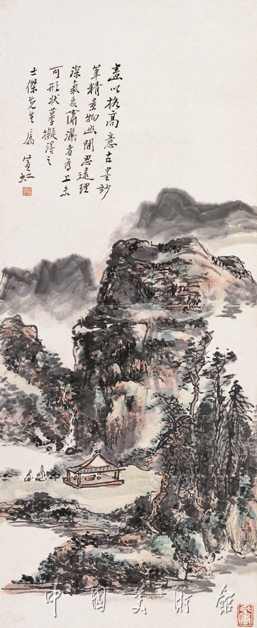 畫以格高意古墨妙
筆精景物幽閒思遠理
深氣象瀟灑者為上未
可形狀摹擬得之
士傑先生屬 賓虹
中國美術館